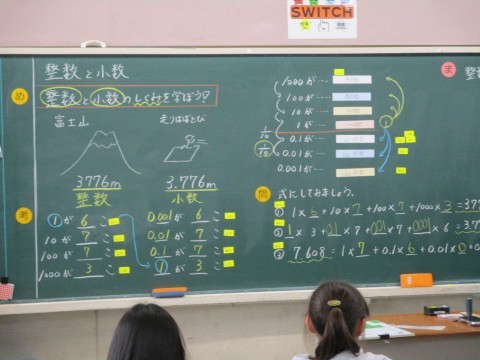 SWITCH
整数と小数
め
整数と小数のしくみを学ぼう?
富士山
走りはばとび
3776m
整数
3.776m
小数
考
1が 6 こ
10が 7 こ
100が 7 こ
1000が 3 こ
0.001が 6 こ
0.01が 7 こ
0.1が 7 こ
1が 3 こ
1000が
100が
10が
1が
1/10
0.1が
1/10
0.01が
0.001が
ま
整
問
式にしておましょう。
① 1×6+10×7+100×7+1000×3=377
1×3+
×7+
×7+
×6=3.77
7.608=1×7+0.1×6+0.01×0+